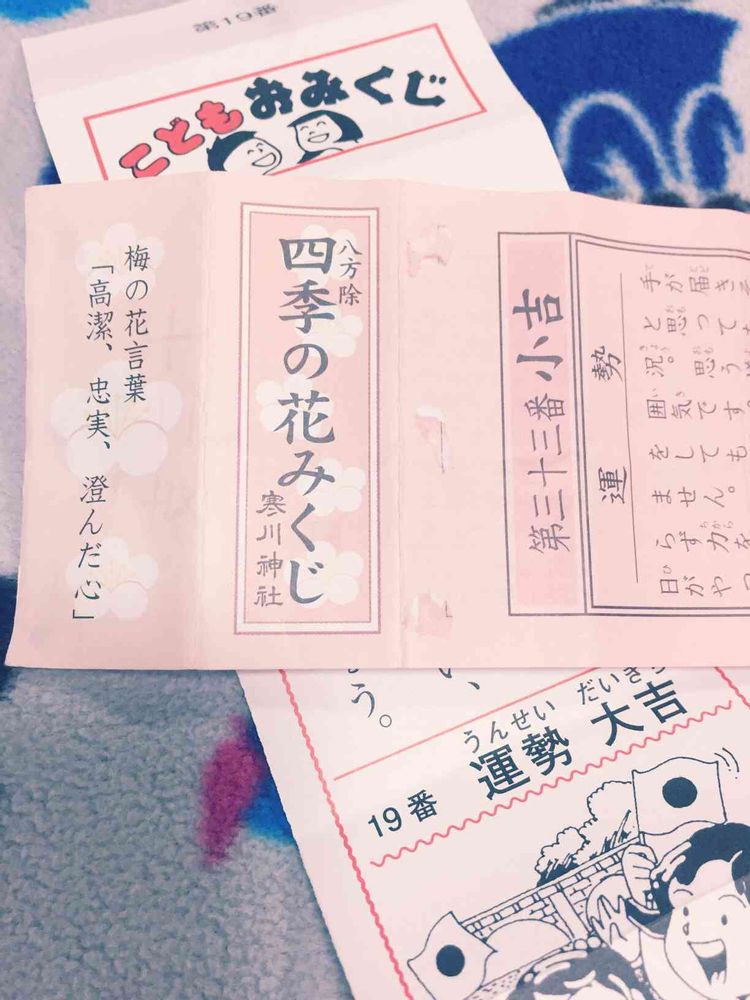 第19番
こどもおみくじ
梅の花言葉
「高潔、忠実、澄んだ心」
八方除
四季の花みくじ
寒川神社
第三十三番 小吉
運勢
手が届き
と思って
況。思う
囲気です
をしても
ません。
らず力を
日がや
い、
ょう。
19番 運勢 大吉
うんせい だいき